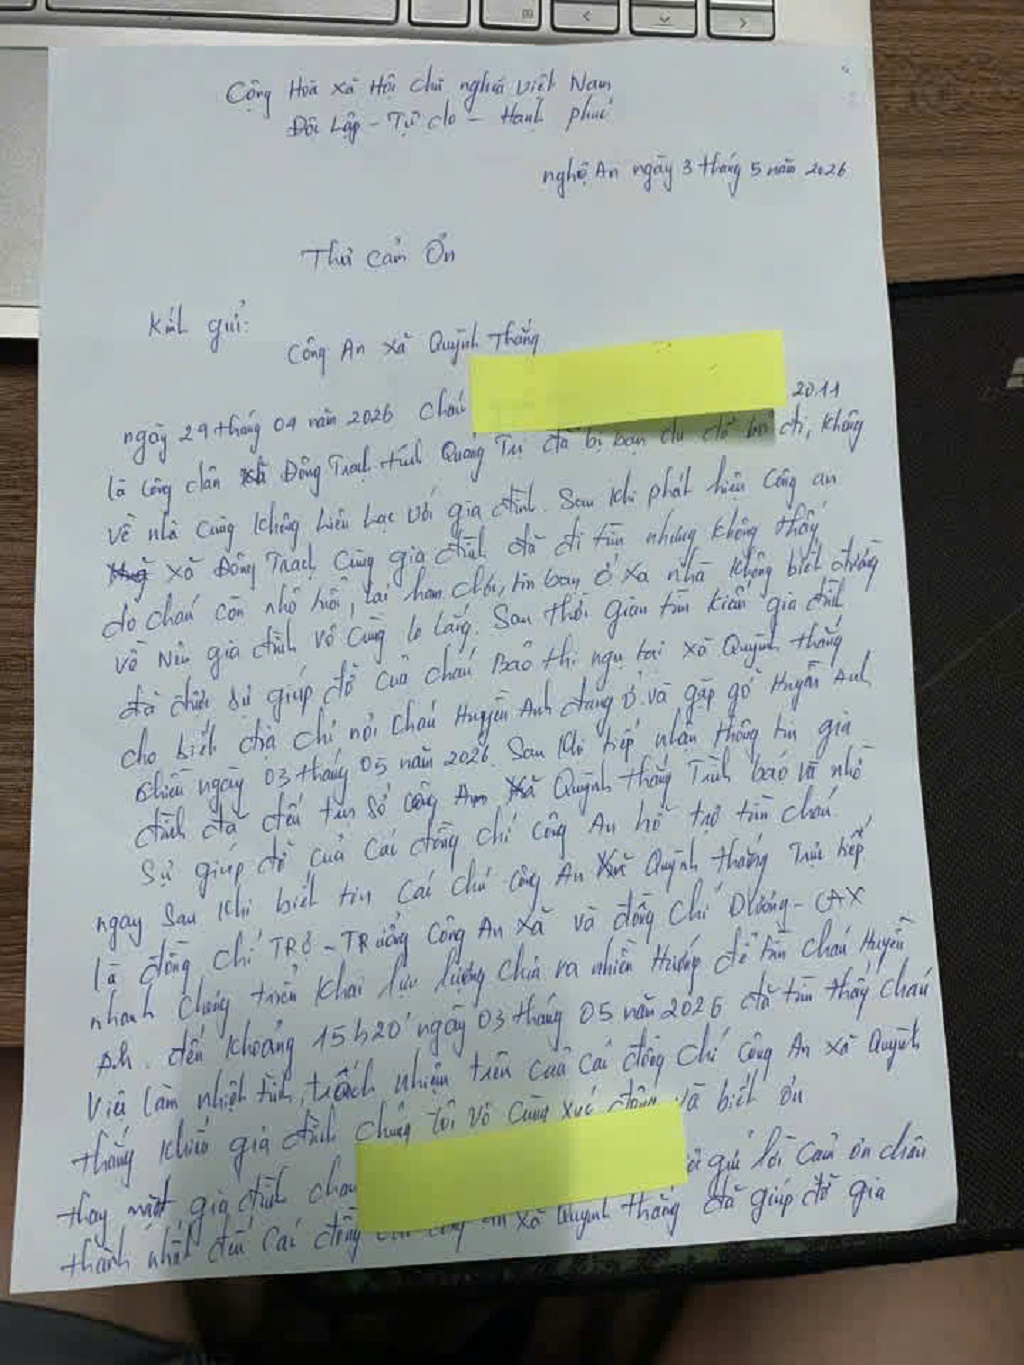 Cộng Hòa xã Hội chủ nghĩa Việt Nam
Độc Lập - Tự do - Hạnh phúc
nghệ An ngày 3 tháng 5 năm 2026
Thư cảm Ơn
Kính gửi:
Công An xã Quỳnh Thắng
ngày 29 tháng 04 năm 2026 cháu 2011
là công dân xã Đông Trạch tỉnh Quảng Trị đã bị bạn dụ dỗ bỏ đi, không
về nhà cũng không liên lạc với gia đình. Sau khi phát hiện công an
xã Đông Trạch cùng gia đình đã đi tìm nhưng không thấy
do cháu còn nhỏ tuổi, lại ham chơi, tin bạn ở xa nhà không biết đường
về nên gia đình vô cùng lo lắng. Sau thời gian tìm kiếm gia đình
đã được sự giúp đỡ của cháu Bảo thi ngụ tại xã Quỳnh thắng
cho biết địa chỉ nơi cháu Huyền Anh đang ở và gặp gỡ Huyền Anh
chiều ngày 03 tháng 05 năm 2026. Sau khi tiếp nhận thông tin gia
đình đã đến trụ sở công An xã Quỳnh thắng Trình báo và nhờ
Sự giúp đỡ của các đồng chí công An hỗ trợ tìm cháu.
ngay sau khi biết tin các chú công An xã Quỳnh thắng Trực tiếp
là đồng chí TRỞ - TRưởng công An xã và đồng chí Dương - CAX
nhanh chóng triển khai lực lượng chia ra nhiều hướng để tìm cháu Huyền
Anh. đến khoảng 15h20' ngày 03 tháng 05 năm 2026 đã tìm thấy cháu
Việc làm nhiệt tình, trách nhiệm trên của các đồng chí công An xã Quỳnh
thắng khiến gia đình chúng tôi vô cùng xúc động và biết ơn
thay mặt gia đình cháu gửi lời cảm ơn chân
thành nhất đến các đồng chí công an xã Quỳnh thắng đã giúp đỡ gia